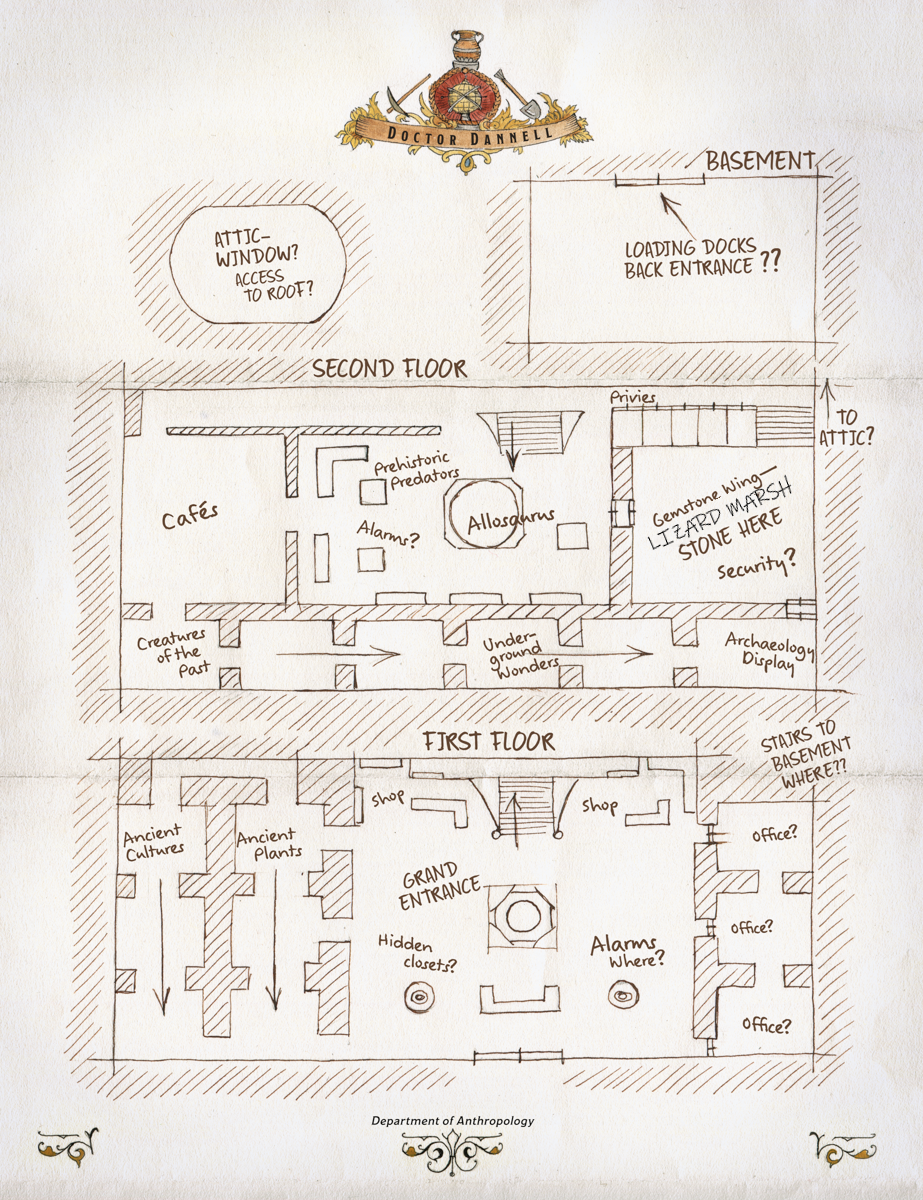 DOCTOR DANNELL
BASEMENT
ATTIC–
WINDOW?
ACCESS
TO ROOF?
LOADING DOCKS
BACK ENTRANCE ??
SECOND FLOOR
Privies
TO
ATTIC?
Prehistoric
Predators
Cafés
Alarms?
Allosaurus
Gemstone Wing—
LIZARD MARSH
STONE HERE
Security?
Creatures
of the
Past
Under-
ground
Wonders
Archaeology
Display
FIRST FLOOR
STAIRS TO
BASEMENT
WHERE??
Shop
Shop
Ancient
Cultures
Ancient
Plants
Office?
GRAND
ENTRANCE
Office?
Hidden
closets?
Alarms
Where?
Office?
Department of Anthropology